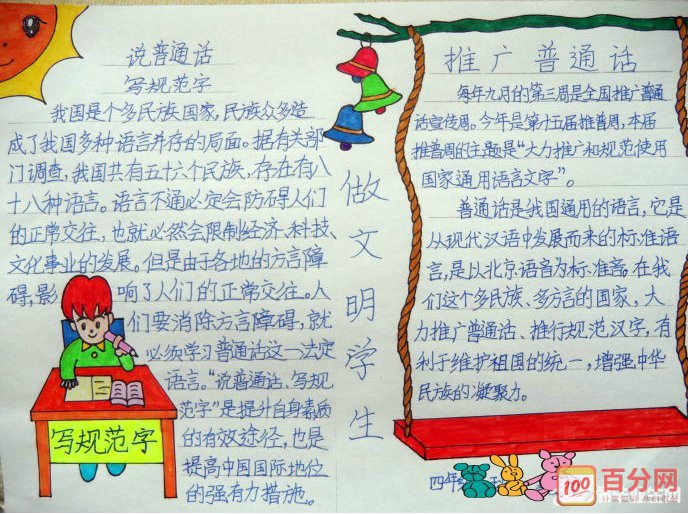 说普通话
写规范字
我国是个多民族国家,民族众多造
成了我国多种语言并存的局面。据有关部
门调查,我国共有五十六个民族,存在有八
十八种语言。语言不通必定会防碍人们
的正常交往,也就必然会限制经济、科技、
文化事业的发展。但是由于各地的方言障
碍,影响了人们的正常交往。人
们要消除方言障碍,就
必须学习普通话这一法定
语言。“说普通话、写规
范字”是提升自身素质
的有效途径,也是
提高中国国际地位
的强有力措施。
写规范字
做文明学生
推广普通话
每年九月的第三周是全国推广普通
话宣传周。今年是第十五届推普周,本届
推普周的主题是“大力推广和规范使用
国家通用语言文字”。
普通话是我国通用的语言,它是
从现代汉语中发展而来的标准语
言,是以北京语音为标准音。在我
们这个多民族、多方言的国家,大
力推广普通话、推行规范汉字,有
利于维护祖国的统一,增强中华
民族的凝聚力。
四年
100
百分网